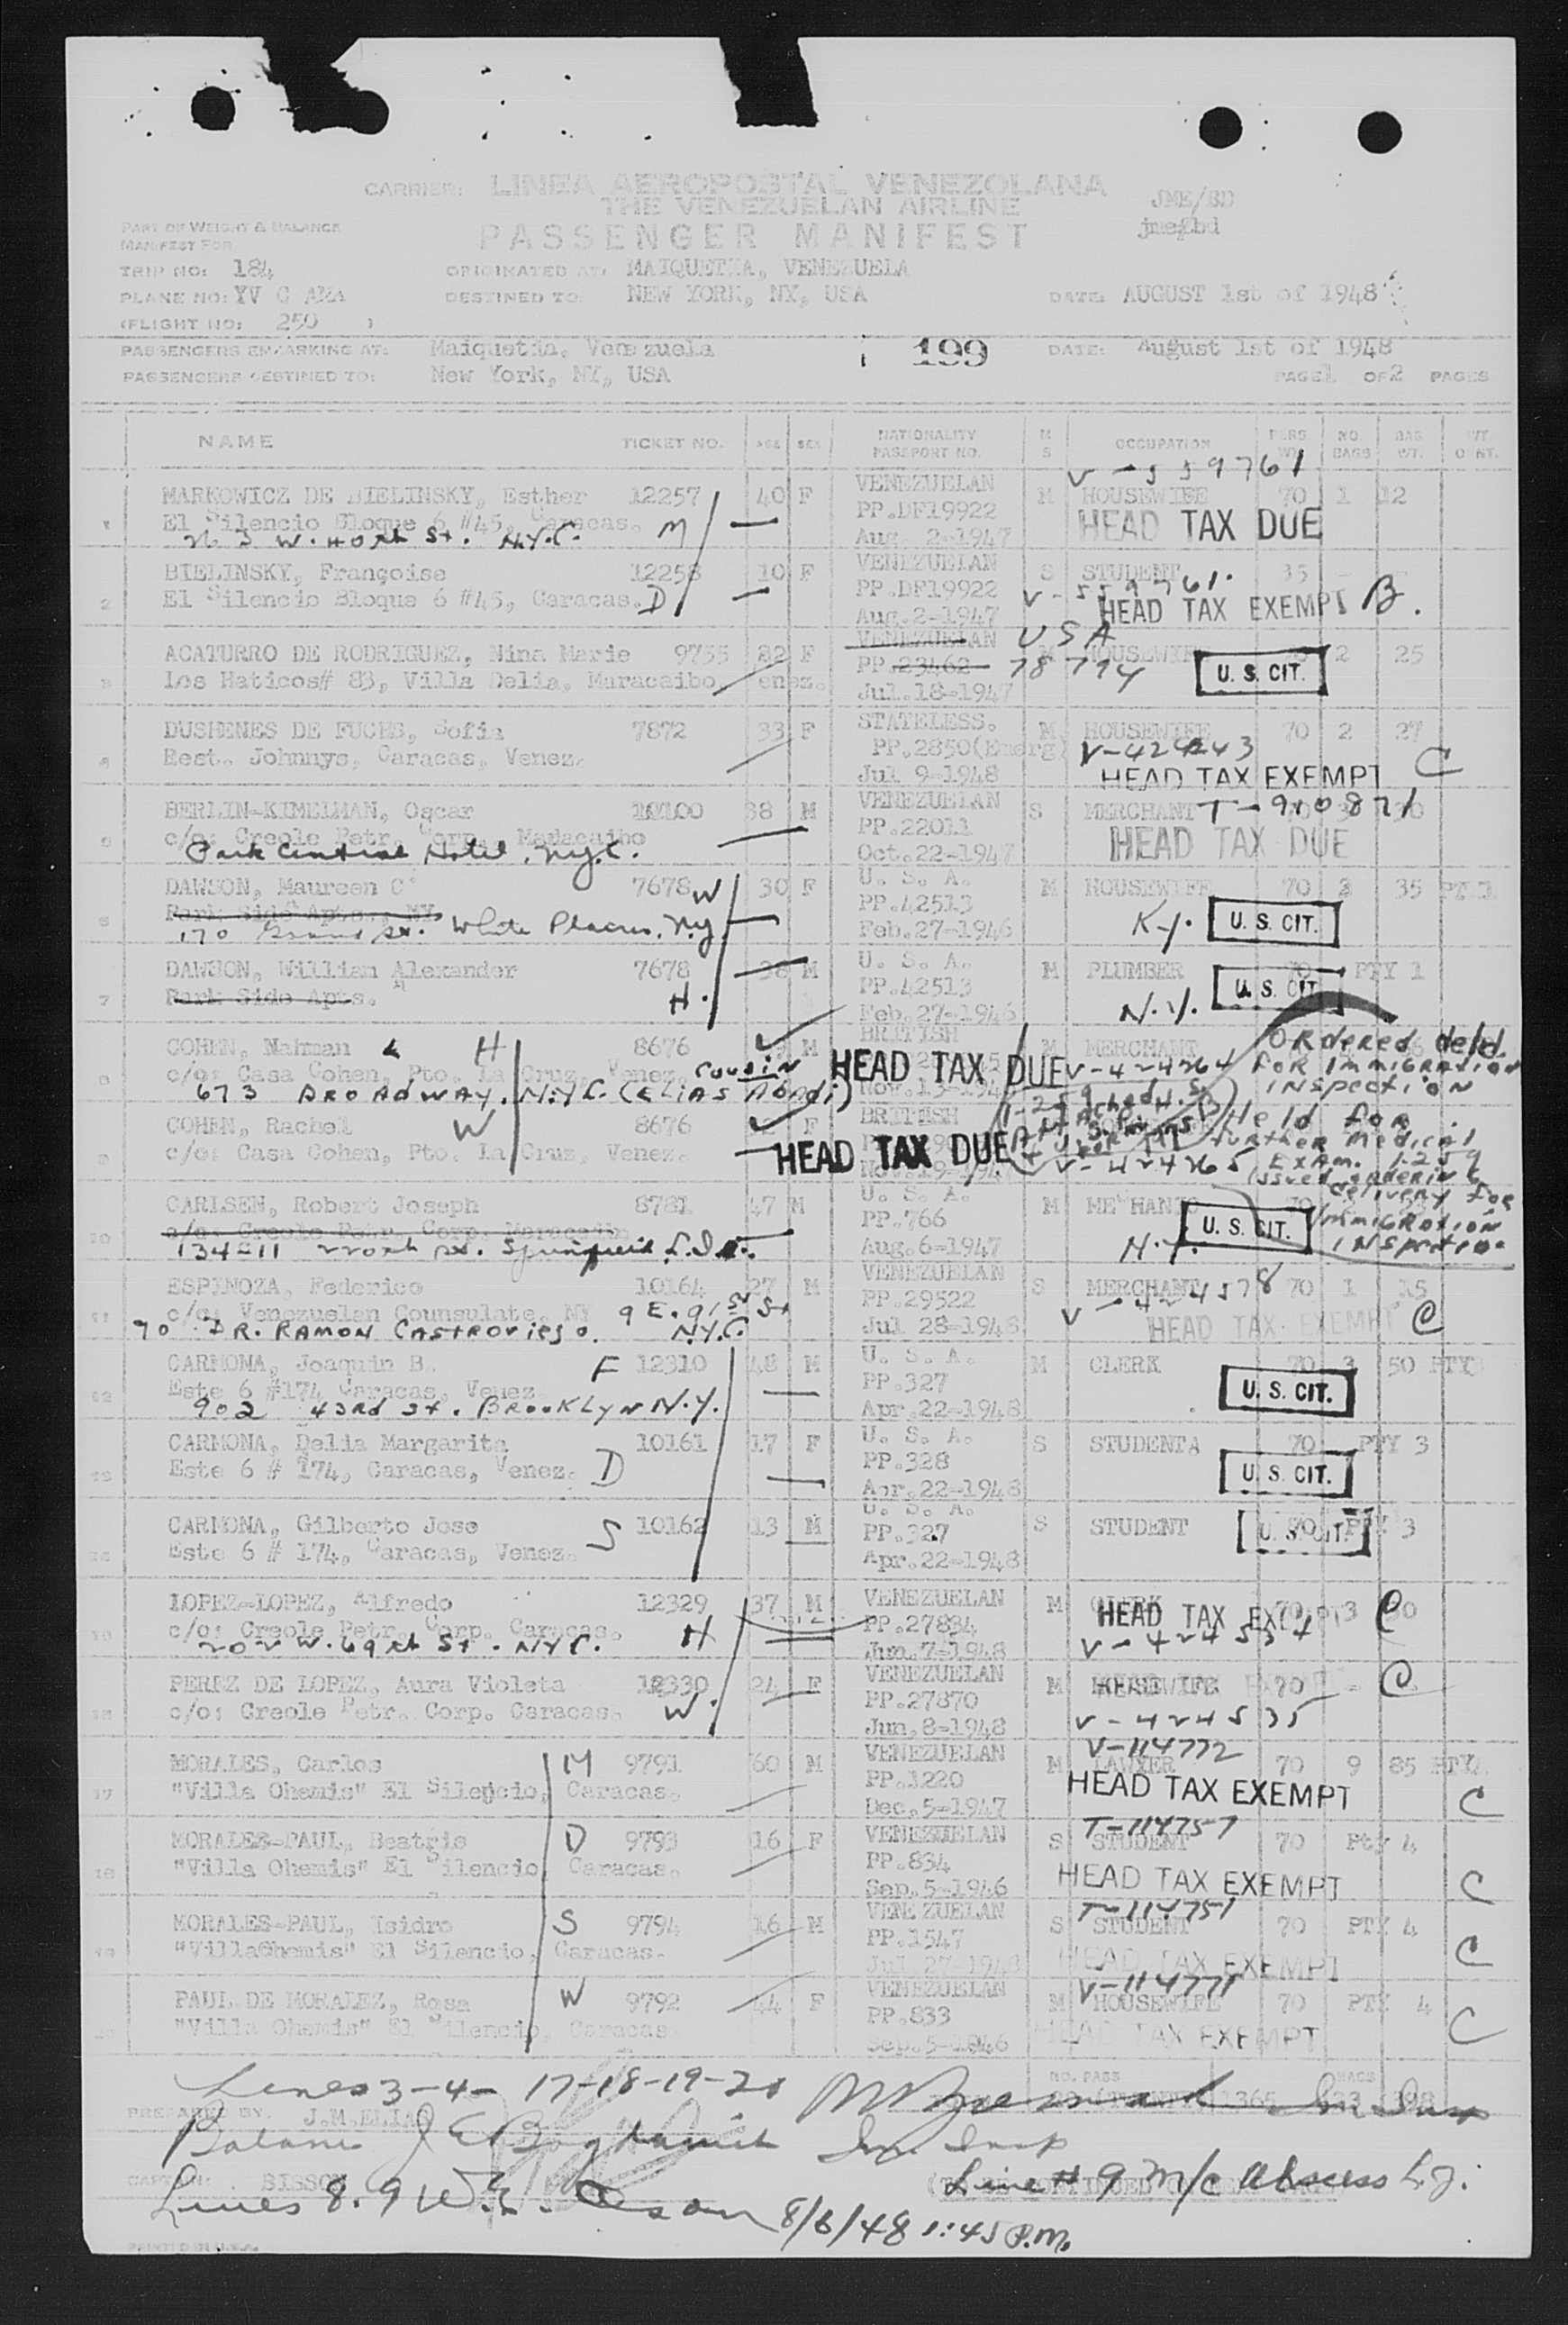 CARRIER: LINEA AEROPOSTAL VENEZOLANA
THE VENEZUELAN AIRLINE
JME/BD
PART OF WEIGHT & BALANCE
MANIFEST FOR
PASSENGER MANIFEST
TRIP NO: 184 ORIGINATED AT: MAIQUETIA, VENEZUELA
PLANE NO: YV C AMA DESTINED TO: NEW YORK, NY, USA DATE: AUGUST 1st of 1948
(FLIGHT NO: 250 )
PASSENGERS EMBARKING AT: Maiquetia, Venezuela 199 DATE: August 1st of 1948
PASSENGERS DESTINED TO: New York, NY, USA PAGE 1 OF 2 PAGES
NAME TICKET NO. AGE SEX NATIONALITY PASSPORT NO. M S OCCUPATION PERS WT. NO. BAGS BAG WT.
V-559761
MARKOWICZ DE BIELINSKY, Esther 12257 40 F VENEZUELAN M HOUSEWIFE 70 1 12
1 El Silencio Bloque 6 #45, Caracas. PP.DF19922 HEAD TAX DUE
263 W. 40th St. N.Y.C. M Aug. 2-1947
BIELINSKY, Françoise 12258 10 F VENEZUELAN S STUDENT 35
2 El Silencio Bloque 6 #45, Caracas. D PP.DF19922 V-559761.
Aug. 2-1947 HEAD TAX EXEMPT B.
ACATURRO DE RODRIGUEZ, Nina Marie 9755 22 F VENEZUELAN USA HOUSEWIFE 2 25
3 Los Haticos# 83, Villa Delia, Maracaibo, Venez. PP.23462 78794 U.S. CIT.
Jul.18-1947
DUSHENES DE FUCHS, Sofia 7872 33 F STATELESS. M HOUSEWIFE 70 2 27
4 Rest. Johnnys, Caracas, Venez. PP.2850(Emerg) V-424243
Jul 9-1948 HEAD TAX EXEMPT C
BERLIN-KIMELMAN, Oscar 10100 38 M VENEZUELAN S MERCHANT T-910871
5 c/o: Creole Petr. Corp. Maracaibo PP.22011 HEAD TAX DUE
Park Central Hotel, N.Y.C. Oct.22-1947
DAWSON, Maureen C 7678 W 30 F U. S. A. M HOUSEWIFE 70 2 35 PT 1
6 Park Side Apts., NY PP.42513 N.Y. U.S. CIT.
170 Grand St. White Plains, N.Y. Feb.27-1946
DAWSON, William Alexander 7678 38 M U. S. A. M PLUMBER 70 PTY 1
7 Park Side Apts. H. PP.42513 N.Y. U.S. CIT
Feb.27-1946
COHEN, Nahman H 8676 M BRITISH M MERCHANT ORdered held
8 c/o: Casa Cohen, Pto. La Cruz, Venez. cousin HEAD TAX DUE V-424264 FOR ImmiGRATION
673 BROADWAY. N.Y.C. (ELIAS Abadi) Nov.13-194 INSpection
COHEN, Rachel W 8676 F BRITISH Held for
9 c/o: Casa Cohen, Pto. La Cruz, Venez. HEAD TAX DUE V-424265 further Medical
EXAM. 1-259
issued ordering
delivery for
ImmiGRation
INSpection
CARLSEN, Robert Joseph 8781 47 M U. S. A. M MECHANIC
10 c/o: Creole Petr. Corp. Maracaibo PP.766 N.Y. U.S. CIT.
Aug.6-1947
ESPINOZA, Federico 10164 27 M VENEZUELAN S MERCHANT 70 1 15
11 c/o: Venezuelan Counsulate, NY 9 E. 91st St PP.29522 V-424578
% DR. RAMON CASTROVIEJO. N.Y.C. Jul 28-1948 HEAD TAX EXEMPT C
CARMONA, Joaquin B. F 12310 48 M U. S. A. M CLERK 70 3 50 PTY3
12 Este 6 #174 Caracas, Venez. PP.327 U.S. CIT.
902 43rd St. BROOKLYN N.Y. Apr.22-1948
CARMONA, Delia Margarita 10161 17 F U. S. A. S STUDENTA 70 PTY 3
13 Este 6 # 174, Caracas, Venez. D PP.328 U.S. CIT.
Apr.22-1948
CARMONA, Gilberto Jose S 10162 13 M U. S. A. S STUDENT 70 PTY 3
14 Este 6 # 174, Caracas, Venez. PP.327 U.S. CIT.
Apr.22-1948
LOPEZ-LOPEZ, Alfredo 12329 37 M VENEZUELAN M CLERK 70 3 C
15 c/o: Creole Petr. Corp. Caracas. H PP.27834 HEAD TAX EXEMPT
202 W. 69th St. NYC. Jun.7-1948 V-424534
PEREZ DE LOPEZ, Aura Violeta 12330 24 F VENEZUELAN M HOUSEWIFE 70 - C
16 c/o: Creole Petr. Corp. Caracas. W. PP.27870
Jun.8-1948 V-424535
V-114772
MORALES, Carlos M 9791 60 M VENEZUELAN M LAWYER 70 9 85 PTY4
17 "Villa Ohemis" El Silencio, Caracas. PP.1220 HEAD TAX EXEMPT C
Dec.5-1947
T-114757
MORALES-PAUL, Beatris D 9793 16 F VENEZUELAN S STUDENT 70 Pty 4
18 "Villa Ohemis" El Silencio, Caracas. PP.834 HEAD TAX EXEMPT C
Sep.5-1946
T-114751
MORALES-PAUL, Isidro S 9794 16 M VENEZUELAN S STUDENT 70 PTY 4
19 "VillaOhemis" El Silencio, Caracas. PP.1547 HEAD TAX EXEMPT C
Jul 27-1948
V-114771
PAUL DE MORALEZ, Rosa W 9792 44 F VENEZUELAN M HOUSEWIFE 70 PTY 4
20 "Villa Ohemis" El Silencio, Caracas PP.833 HEAD TAX EXEMPT C
Sep.5-1946
Lines 3-4- 17-18-19-20
NO. PASS BAGS
PREPARED BY J.M.ELIA
Balance Im. Insp
CAPTAIN: BISSO Line # 9 M/C Abscess L.J.
Lines 8. 9 8/6/48 1:45 P.M.